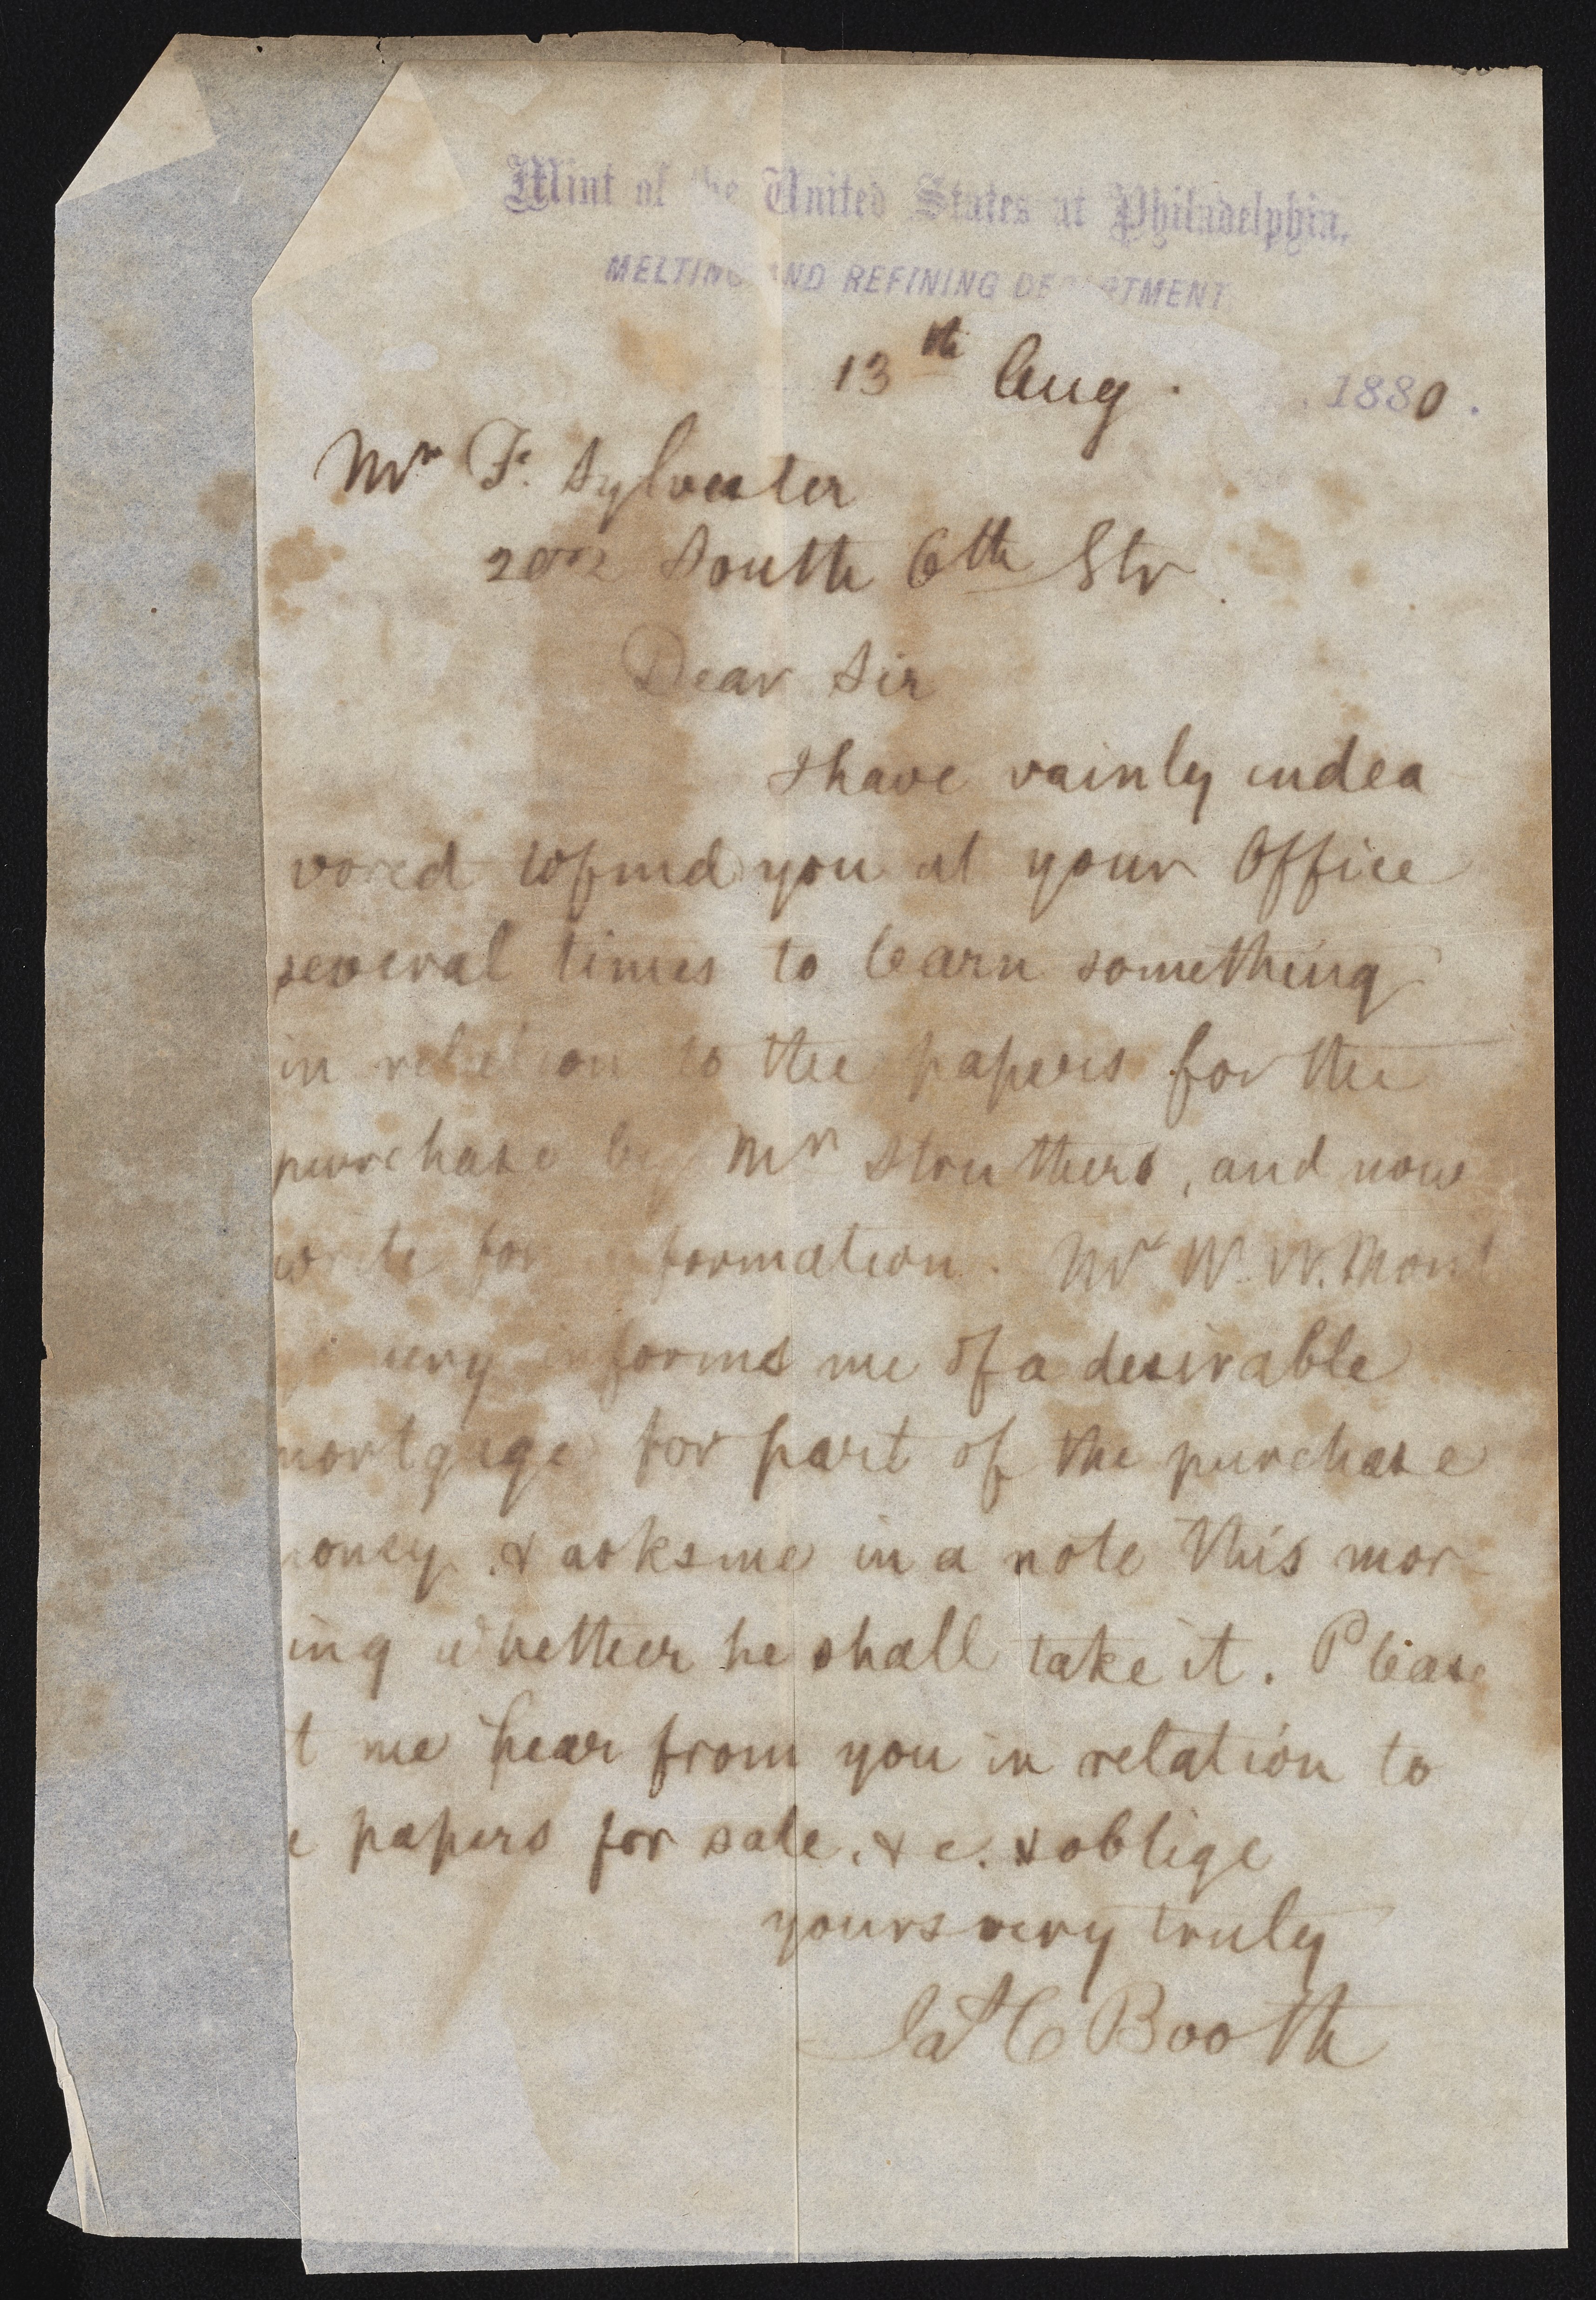 Mint of the United States at Philadelphia,
MELTING AND REFINING DEPARTMENT
13th Aug. 1880.
Mr F. Sylvester
South 6th Str
Dear Sir
I have vainly endea
vored to find you at your Office
several times to learn something
in relation to the papers for the
purchase by Mr Struthers, and now
write for formation. Mr W. W. Mont
ery informs me of a desirable
mortgage for part of the purchase
money. & asks me in a note this mor-
ing whether he shall take it. Please
t me hear from you in relation to
e papers for sale, &c. & oblige
yours very truly
Jas C Booth